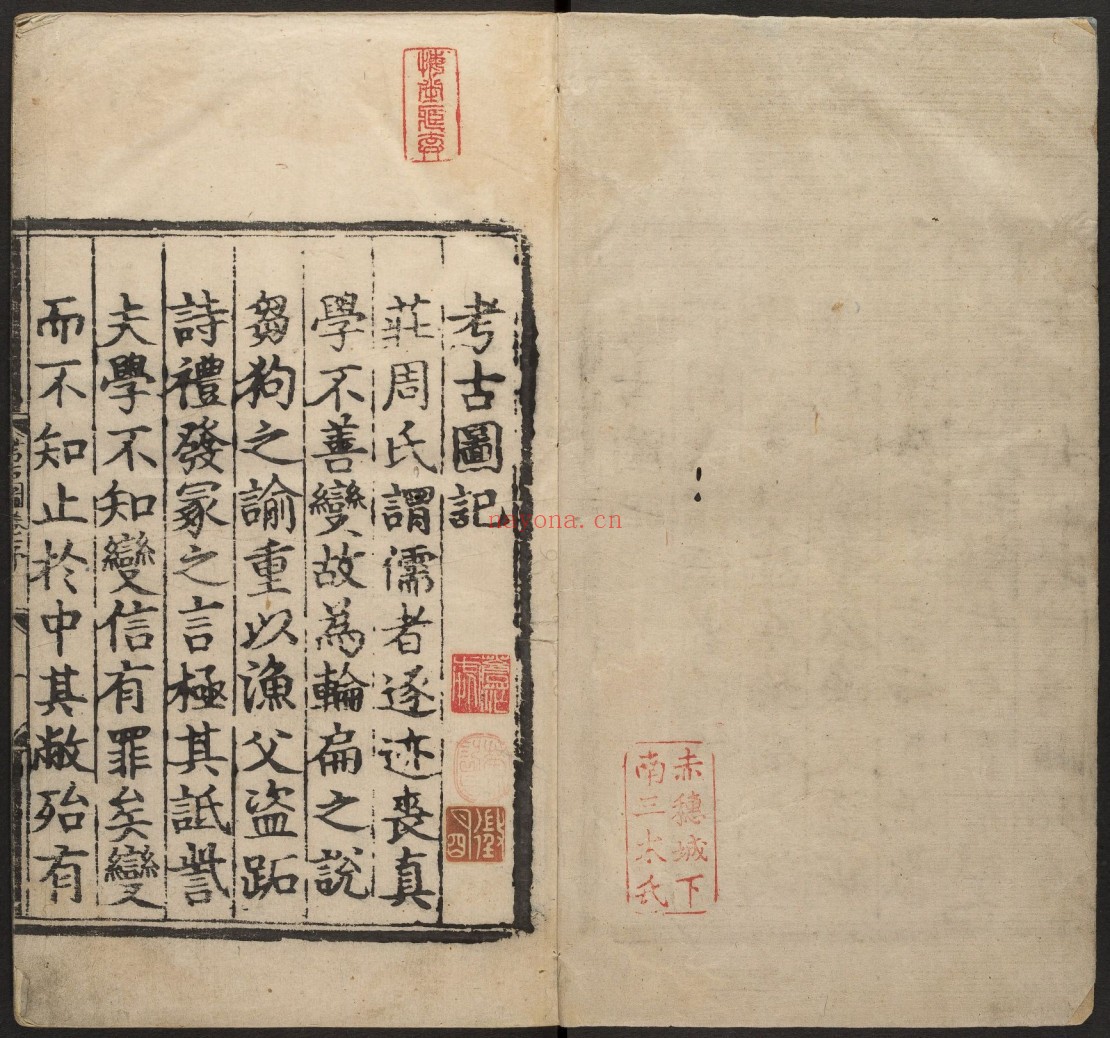 赤穗城下
南三木氏
考古圖記
莊周氏謂儒者逐迹喪真
學不善變故為輪扁之説
芻狗之諭重以漁父盜跖
詩禮發冢之言極其詆訾
夫學不知變信有罪矣變
而不知止於中其敝殆有
nayona.cn